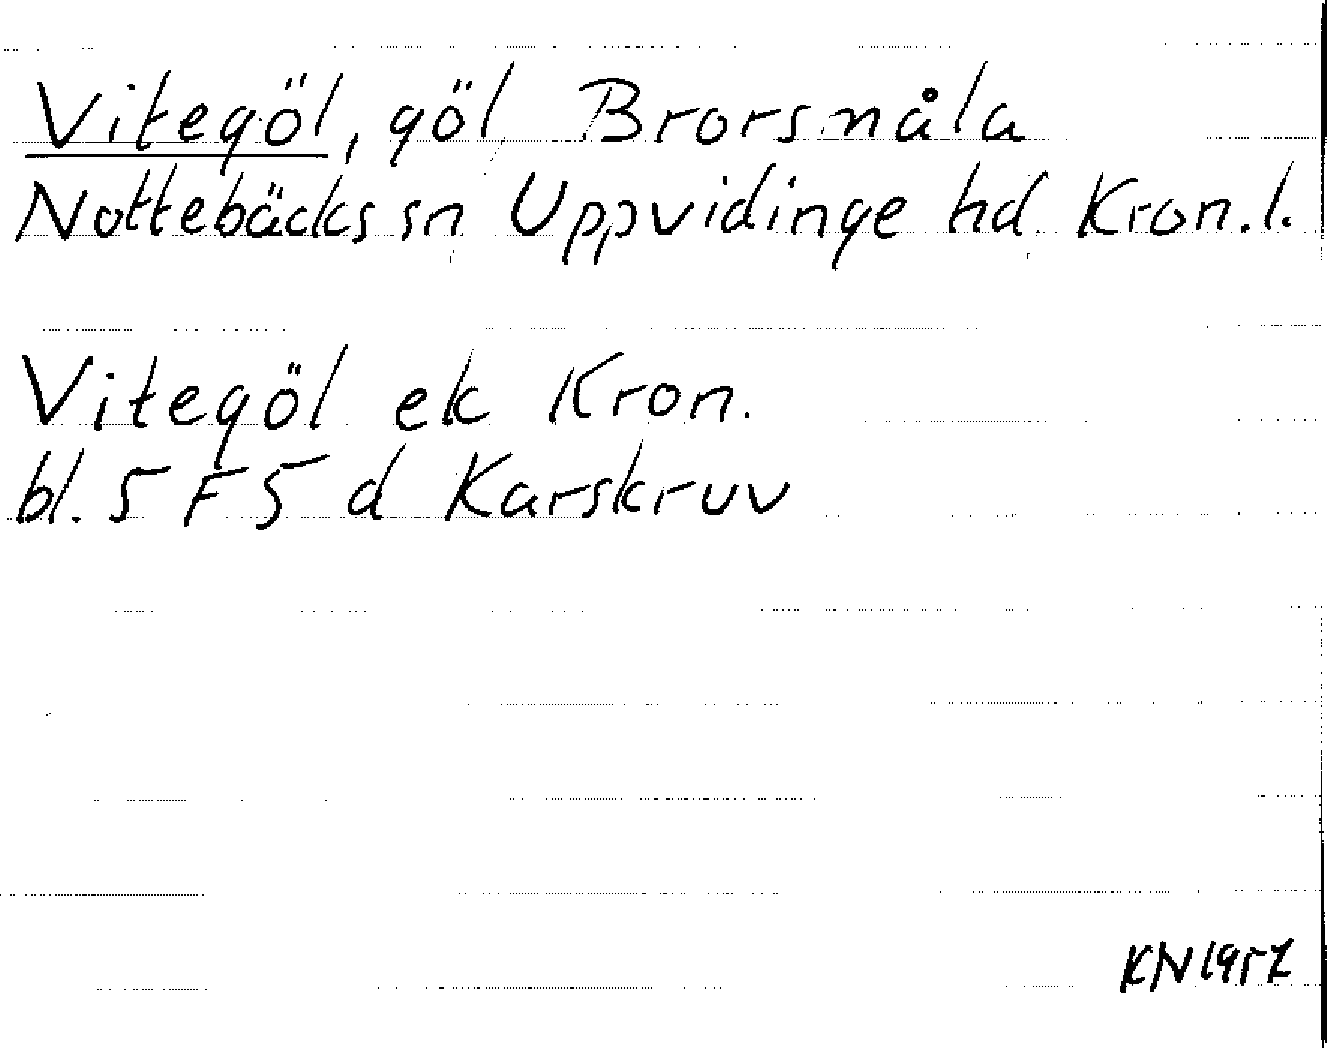 Vitegöl, göl Brorsmåla
Nottebäcks sn Uppvidinge hd Kron.l.
Vitegöl ek Kron.
bl. 5 F 5 d Karskruv
KN 1957